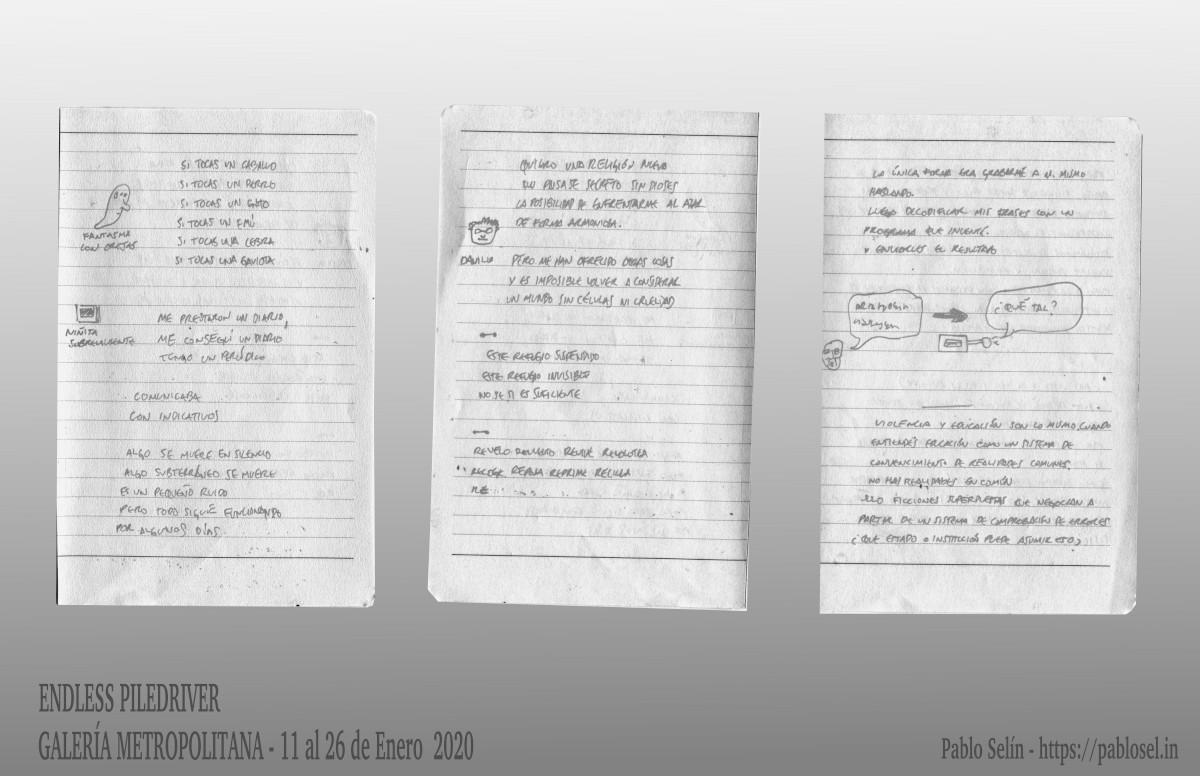 SI TOCAS UN CABALLO
SI TOCAS UN PERRO
SI TOCAS UN GATO
SI TOCAS UN EMÚ
SI TOCAS UNA CEBRA
SI TOCAS UNA GAVIOTA
FANTASMA
CON OREJAS
ME PRESTARON UN DIARIO,
ME CONSEGUÍ UN DIARIO
TENGO UN PERIÓDICO
NIÑITA
SUBREALMENTE
COMUNICABA
CON INDICATIVOS
ALGO SE MUERE EN SILENCIO
ALGO SUBTERRÁNEO SE MUERE
ES UN PEQUEÑO RUIDO
PERO TODO SIGUE FUNCIONANDO
POR ALGUNOS DÍAS.
QUIERO UNA RELIGIÓN NUEVA
SECRETO SIN DIOSES
LA POSIBILIDAD DE ENFRENTARME AL AZAR
DE FORMA ARMONIOSA.
DANILO
PERO ME HAN OFRECIDO OTRAS COSAS
Y ES IMPOSIBLE VOLVER A CONSIDERAR
UN MUNDO SIN CÉLULAS NI CRUELDAD
ESTE REFUGIO SUSPENDIDO
ESTE REFUGIO INVISIBLE
NO SE SI ES SUFICIENTE
REVELO REVIVE
RECOGE REPRIME RECICLA
RE
LA ÚNICA FORMA ERA GRABARME A MI MISMO
HABLANDO.
LUEGO DECODIFICAR MIS FRASES CON UN
PROGRAMA QUE INVENTÉ.
Y ENVIARLES EL RESULTADO
¿QUÉ TAL?
VIOLENCIA Y EDUCACIÓN SON LO MISMO, CUANDO
ENTIENDES EDUCACIÓN COMO UN SISTEMA DE
CONVENCIMIENTO DE REALIDADES COMUNES.
NO HAY REALIDADES EN COMÚN
SOLO FICCIONES SUPERPUESTAS QUE NEGOCIAN A
PARTIR DE UN SISTEMA DE COMPROBACIÓN DE ERRORES
¿QUE ESTADO O INSTITUCIÓN PUEDE ASUMIR ESO?
ENDLESS PILEDRIVER
GALERÍA METROPOLITANA - 11 al 26 de Enero 2020
Pablo Selín - https://pablosel.in